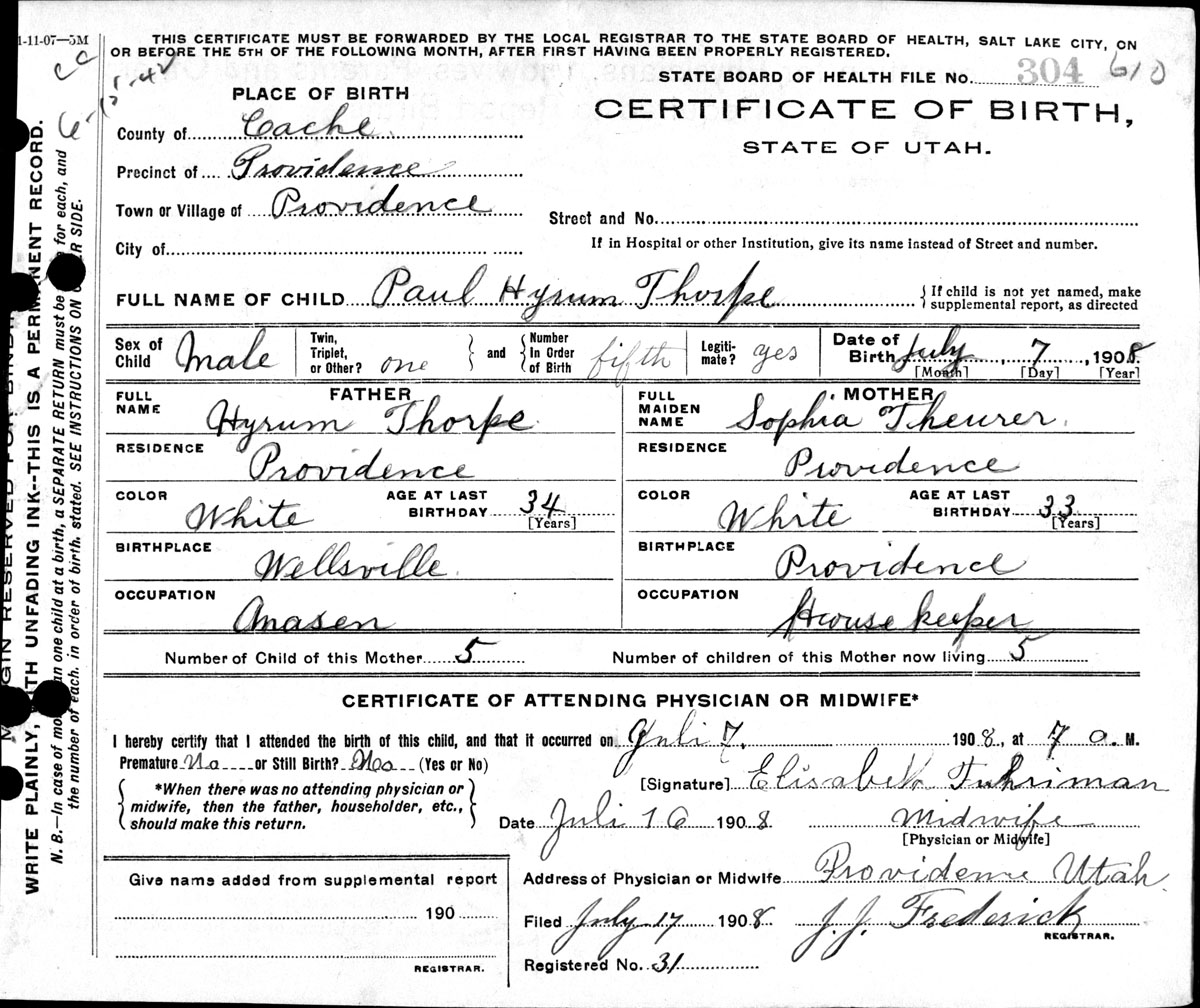 1-11-07—5M
THIS CERTIFICATE MUST BE FORWARDED BY THE LOCAL REGISTRAR TO THE STATE BOARD OF HEALTH, SALT LAKE CITY, ON
OR BEFORE THE 5TH OF THE FOLLOWING MONTH, AFTER FIRST HAVING BEEN PROPERLY REGISTERED.
STATE BOARD OF HEALTH FILE No. 304 610
PLACE OF BIRTH
CERTIFICATE OF BIRTH,
STATE OF UTAH.
County of Cache
Precinct of Providence
Town or Village of Providence
Street and No.
City of
If in Hospital or other Institution, give its name instead of Street and number.
FULL NAME OF CHILD Paul Hyrum Thorpe { If child is not yet named, make
supplemental report, as directed
Sex of Child Male Twin, Triplet, or Other? one } and { Number In Order of Birth fifth Legiti-mate? yes Date of Birth July 7, 1908
[Month] [Day] [Year]
FATHER MOTHER
FULL NAME Hyrum Thorpe FULL MAIDEN NAME Sophia Theurer
RESIDENCE Providence RESIDENCE Providence
COLOR White AGE AT LAST BIRTHDAY 34 [Years] COLOR White AGE AT LAST BIRTHDAY 33 [Years]
BIRTHPLACE Wellsville BIRTHPLACE Providence
OCCUPATION Masen OCCUPATION House keeper
Number of Child of this Mother 5 Number of children of this Mother now living 5
CERTIFICATE OF ATTENDING PHYSICIAN OR MIDWIFE*
I hereby certify that I attended the birth of this child, and that it occurred on Juli 7. 1908, at 7 a. M.
Premature No or Still Birth? No (Yes or No)
[Signature] Elisabeth Fuhriman
{ *When there was no attending physician or
midwife, then the father, householder, etc.,
should make this return. }
Date Juli 16 1908 Midwife
[Physician or Midwife]
Address of Physician or Midwife Providence Utah
Give name added from supplemental report
190
REGISTRAR.
Filed July 17 1908 J. J. Frederick
REGISTRAR.
Registered No. 31
GIN RESERVED FOR
WRITE PLAINLY, WITH UNFADING INK--THIS IS A PERMANENT RECORD.
N. B.—In case of more than one child at a birth, a SEPARATE RETURN must be for each, and
the number of each, in order of birth, stated. SEE INSTRUCTIONS ON OTHER SIDE.